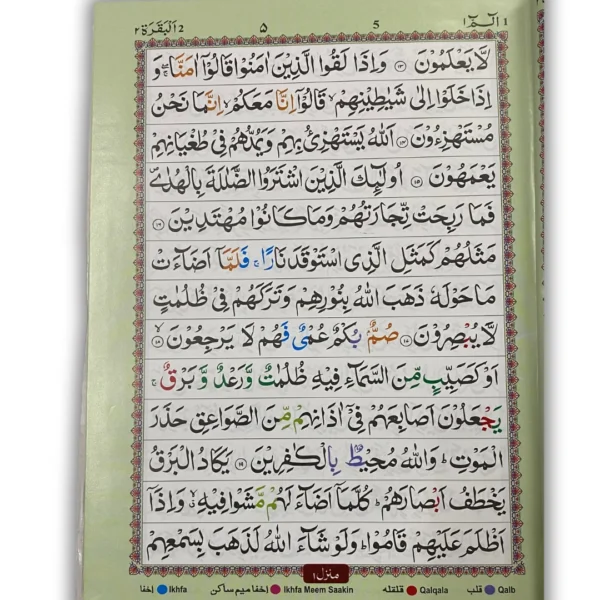 1 الٓمّٓ ١ 5 ۵ 2 اَلْبَقَرَة ٢
لَّا يَعْلَمُوْنَ ﴿۱۳﴾ وَاِذَا لَقُوا الَّذِيْنَ اٰمَنُوْا قَالُوْٓا اٰمَنَّا ۖۚ وَ
اِذَا خَلَوْا اِلٰى شَيٰطِيْنِهِمْ ۙ قَالُوْٓا اِنَّا مَعَكُمْ ۙ اِنَّمَا نَحْنُ
مُسْتَهْزِءُوْنَ ﴿۱۴﴾ اَللّٰهُ يَسْتَهْزِئُ بِهِمْ وَيَمُدُّهُمْ فِيْ طُغْيَانِهِمْ
يَعْمَهُوْنَ ﴿۱۵﴾ اُولٰٓئِكَ الَّذِيْنَ اشْتَرَوُا الضَّلٰلَةَ بِالْهُدٰى ۪
فَمَا رَبِحَتْ تِّجَارَتُهُمْ وَمَا كَانُوْا مُهْتَدِيْنَ ﴿۱۶﴾
مَثَلُهُمْ كَمَثَلِ الَّذِى اسْتَوْقَدَ نَارًا ۚ فَلَمَّآ اَضَآءَتْ
مَا حَوْلَهٗ ذَهَبَ اللّٰهُ بِنُوْرِهِمْ وَتَرَكَهُمْ فِيْ ظُلُمٰتٍ
لَّا يُبْصِرُوْنَ ﴿۱۷﴾ صُمٌّۢ بُكْمٌ عُمْىٌ فَهُمْ لَا يَرْجِعُوْنَ ﴿۱۸﴾ ۙ
اَوْ كَصَيِّبٍ مِّنَ السَّمَآءِ فِيْهِ ظُلُمٰتٌ وَّرَعْدٌ وَّبَرْقٌ ۚ
يَجْعَلُوْنَ اَصَابِعَهُمْ فِيْٓ اٰذَانِهِمْ مِّنَ الصَّوَاعِقِ حَذَرَ
الْمَوْتِ ؕ وَاللّٰهُ مُحِيْطٌۢ بِالْكٰفِرِيْنَ ﴿۱۹﴾ يَكَادُ الْبَرْقُ
يَخْطَفُ اَبْصَارَهُمْ ؕ كُلَّمَآ اَضَآءَ لَهُمْ مَّشَوْا فِيْهِ ۙ وَاِذَآ
اَظْلَمَ عَلَيْهِمْ قَامُوْا ؕ وَلَوْ شَآءَ اللّٰهُ لَذَهَبَ بِسَمْعِهِمْ
منزل ١
اخفا Ikhfa اخفا ميم ساكن Ikhfa Meem Saakin قلقله Qalqala قلب Qalb